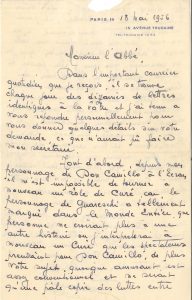 PARIS LE 18 Mai 1956
15 AVENUE TRUDAINE
Monsieur l'Abbé,
Dans l'important courrier
quotidien que je reçois, il se trouve
chaque jour des dizaines de lettres
identiques à la vôtre et j'ai tenu à
vous répondre personnellement pour
vous donner quelques détails sur votre
demande ce que n'aurait pu faire
mon secrétaire.
Tout d'abord, depuis mon
personnage de Don Camillo à l'écran
il m'est impossible de tourner à
nouveau un rôle de Curé car le
personnage de Guareschi a tellement
marqué dans le Monde Entier que
personne ne croirait plus à une
autre histoire ou interviendrait à
nouveau un Curé que les spectateurs
prendraient pour Don Camillo, de plus
votre sujet quoique amusant est
assez conventionnel et ne serait
qu'une pâle copie des luttes entre